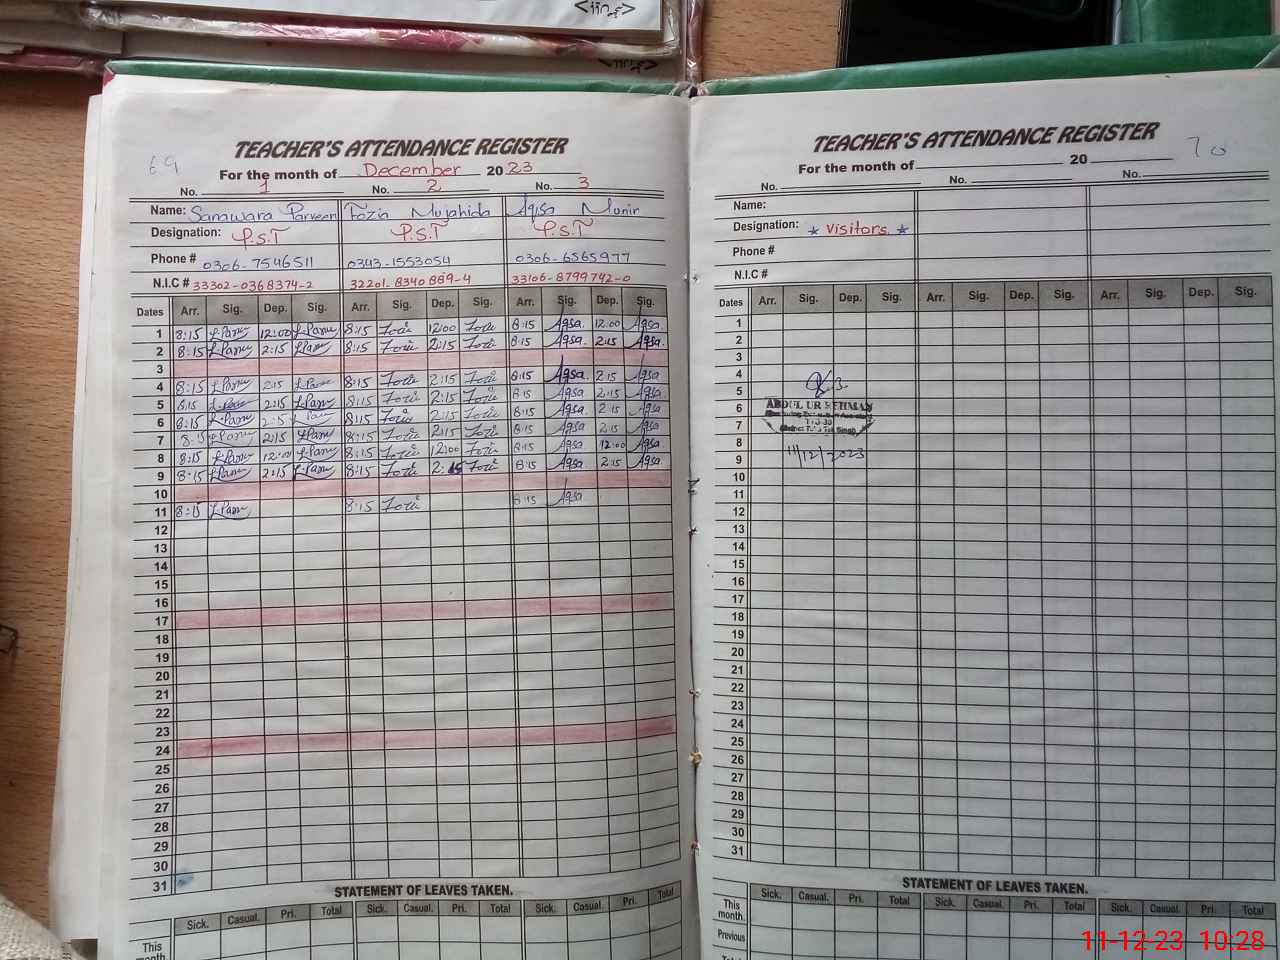 TEACHER'S ATTENDANCE REGISTER
69
For the month of December 2023
No. 1 No. 2 No. 3
Name: Samwara Parveen Fozia Mujahida Aqsa Munir
Designation: P.S.T P.S.T P.S.T
Phone # 0306-7546511 0343-1553054 0306-6565977
N.I.C # 33302-0368374-2 32201-8340889-4 33106-8799742-0
Dates Arr. Sig. Dep. Sig. Arr. Sig. Dep. Sig. Arr. Sig. Dep. Sig.
1 8:15 12:00 8:15 12:00 8:15 Aqsa 12:00 Aqsa
2 8:15 2:15 8:15 2:15 8:15 Aqsa 2:15 Aqsa
3
4 8:15 2:15 8:15 2:15 8:15 Aqsa 2:15 Aqsa
5 8:15 2:15 8:15 2:15 8:15 Aqsa 2:15 Aqsa
6 8:15 2:15 8:15 2:15 8:15 Aqsa 2:15 Aqsa
7 8:15 2:15 8:15 2:15 8:15 Aqsa 2:15 Aqsa
8 8:15 12:00 8:15 12:00 8:15 Aqsa 12:00 Aqsa
9 8:15 2:15 8:15 2:15 8:15 Aqsa 2:15 Aqsa
10
11 8:15 8:15 8:15 Aqsa
12
13
14
15
16
17
18
19
20
21
22
23
24
25
26
27
28
29
30
31
STATEMENT OF LEAVES TAKEN.
Sick. Casual. Pri. Total Sick. Casual. Pri. Total Sick. Casual. Pri. Total
This
month.
TEACHER'S ATTENDANCE REGISTER
70
For the month of 20
No. No. No.
Name:
Designation: * Visitors *
Phone #
N.I.C #
Dates Arr. Sig. Dep. Sig. Arr. Sig. Dep. Sig. Arr. Sig. Dep. Sig.
1
2
3
4
5
6 ABDUL UR REHMAN
7
8
9 11/12/2023
10
11
12
13
14
15
16
17
18
19
20
21
22
23
24
25
26
27
28
29
30
31
STATEMENT OF LEAVES TAKEN.
Sick. Casual. Pri. Total Sick. Casual. Pri. Total Sick. Casual. Pri. Total
This
month.
Previous
11-12-23 10:28